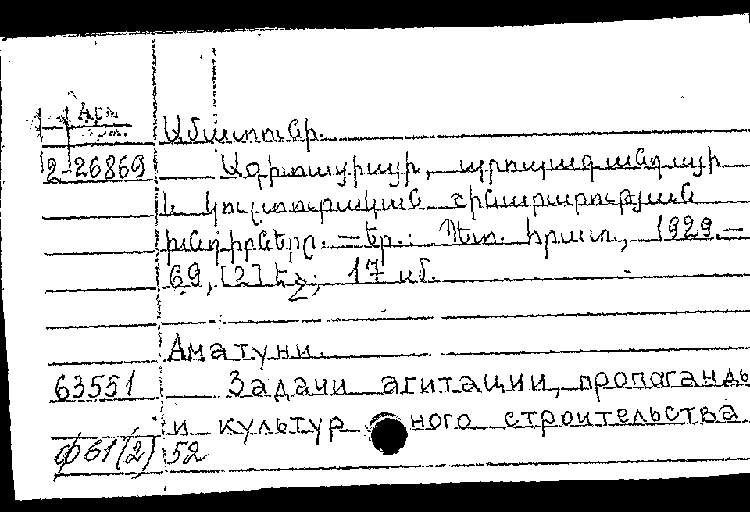 Арм
Ամատունի.
2-26869 Ագիտացիայի, պրոպագանդայի
և կուլտուրական շինարարության
խնդիրները. — Եր.: Պետ. հրատ., 1929.—
69, [2] էջ; 17 սմ.
Аматуни.
63551 Задачи агитации, пропаганды
и культур ного строительства.
ф61(2) 52